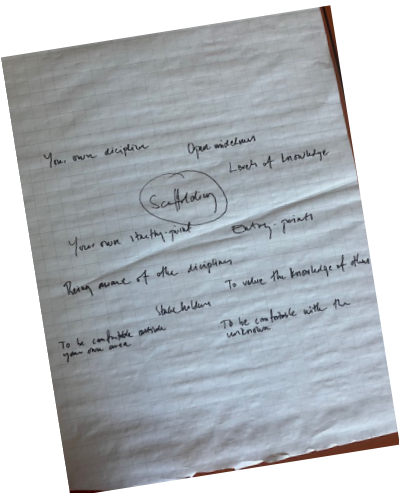 Your own discipline
Open mindedness
Levels of knowledge
Scaffolding
Your own starting-point
Entry-points
Being aware of other disciplines
To value the knowledge of others
Stakeholders
To be comfortable outside
your own area
To be comfortable with the
unknown